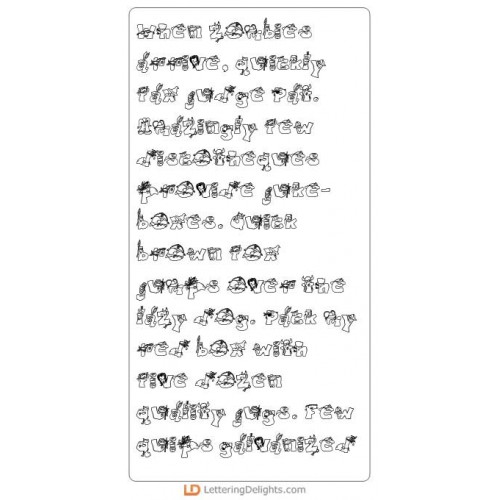 When zombies
arrive, quickly
fax judge Pat.
Amazingly few
discotheques
provide juke-
boxes. Quick
brown fox
jumps over the
lazy dog. Pack my
red box with
five dozen
quality jugs. Few
quips galvanized
LD LetteringDelights.com